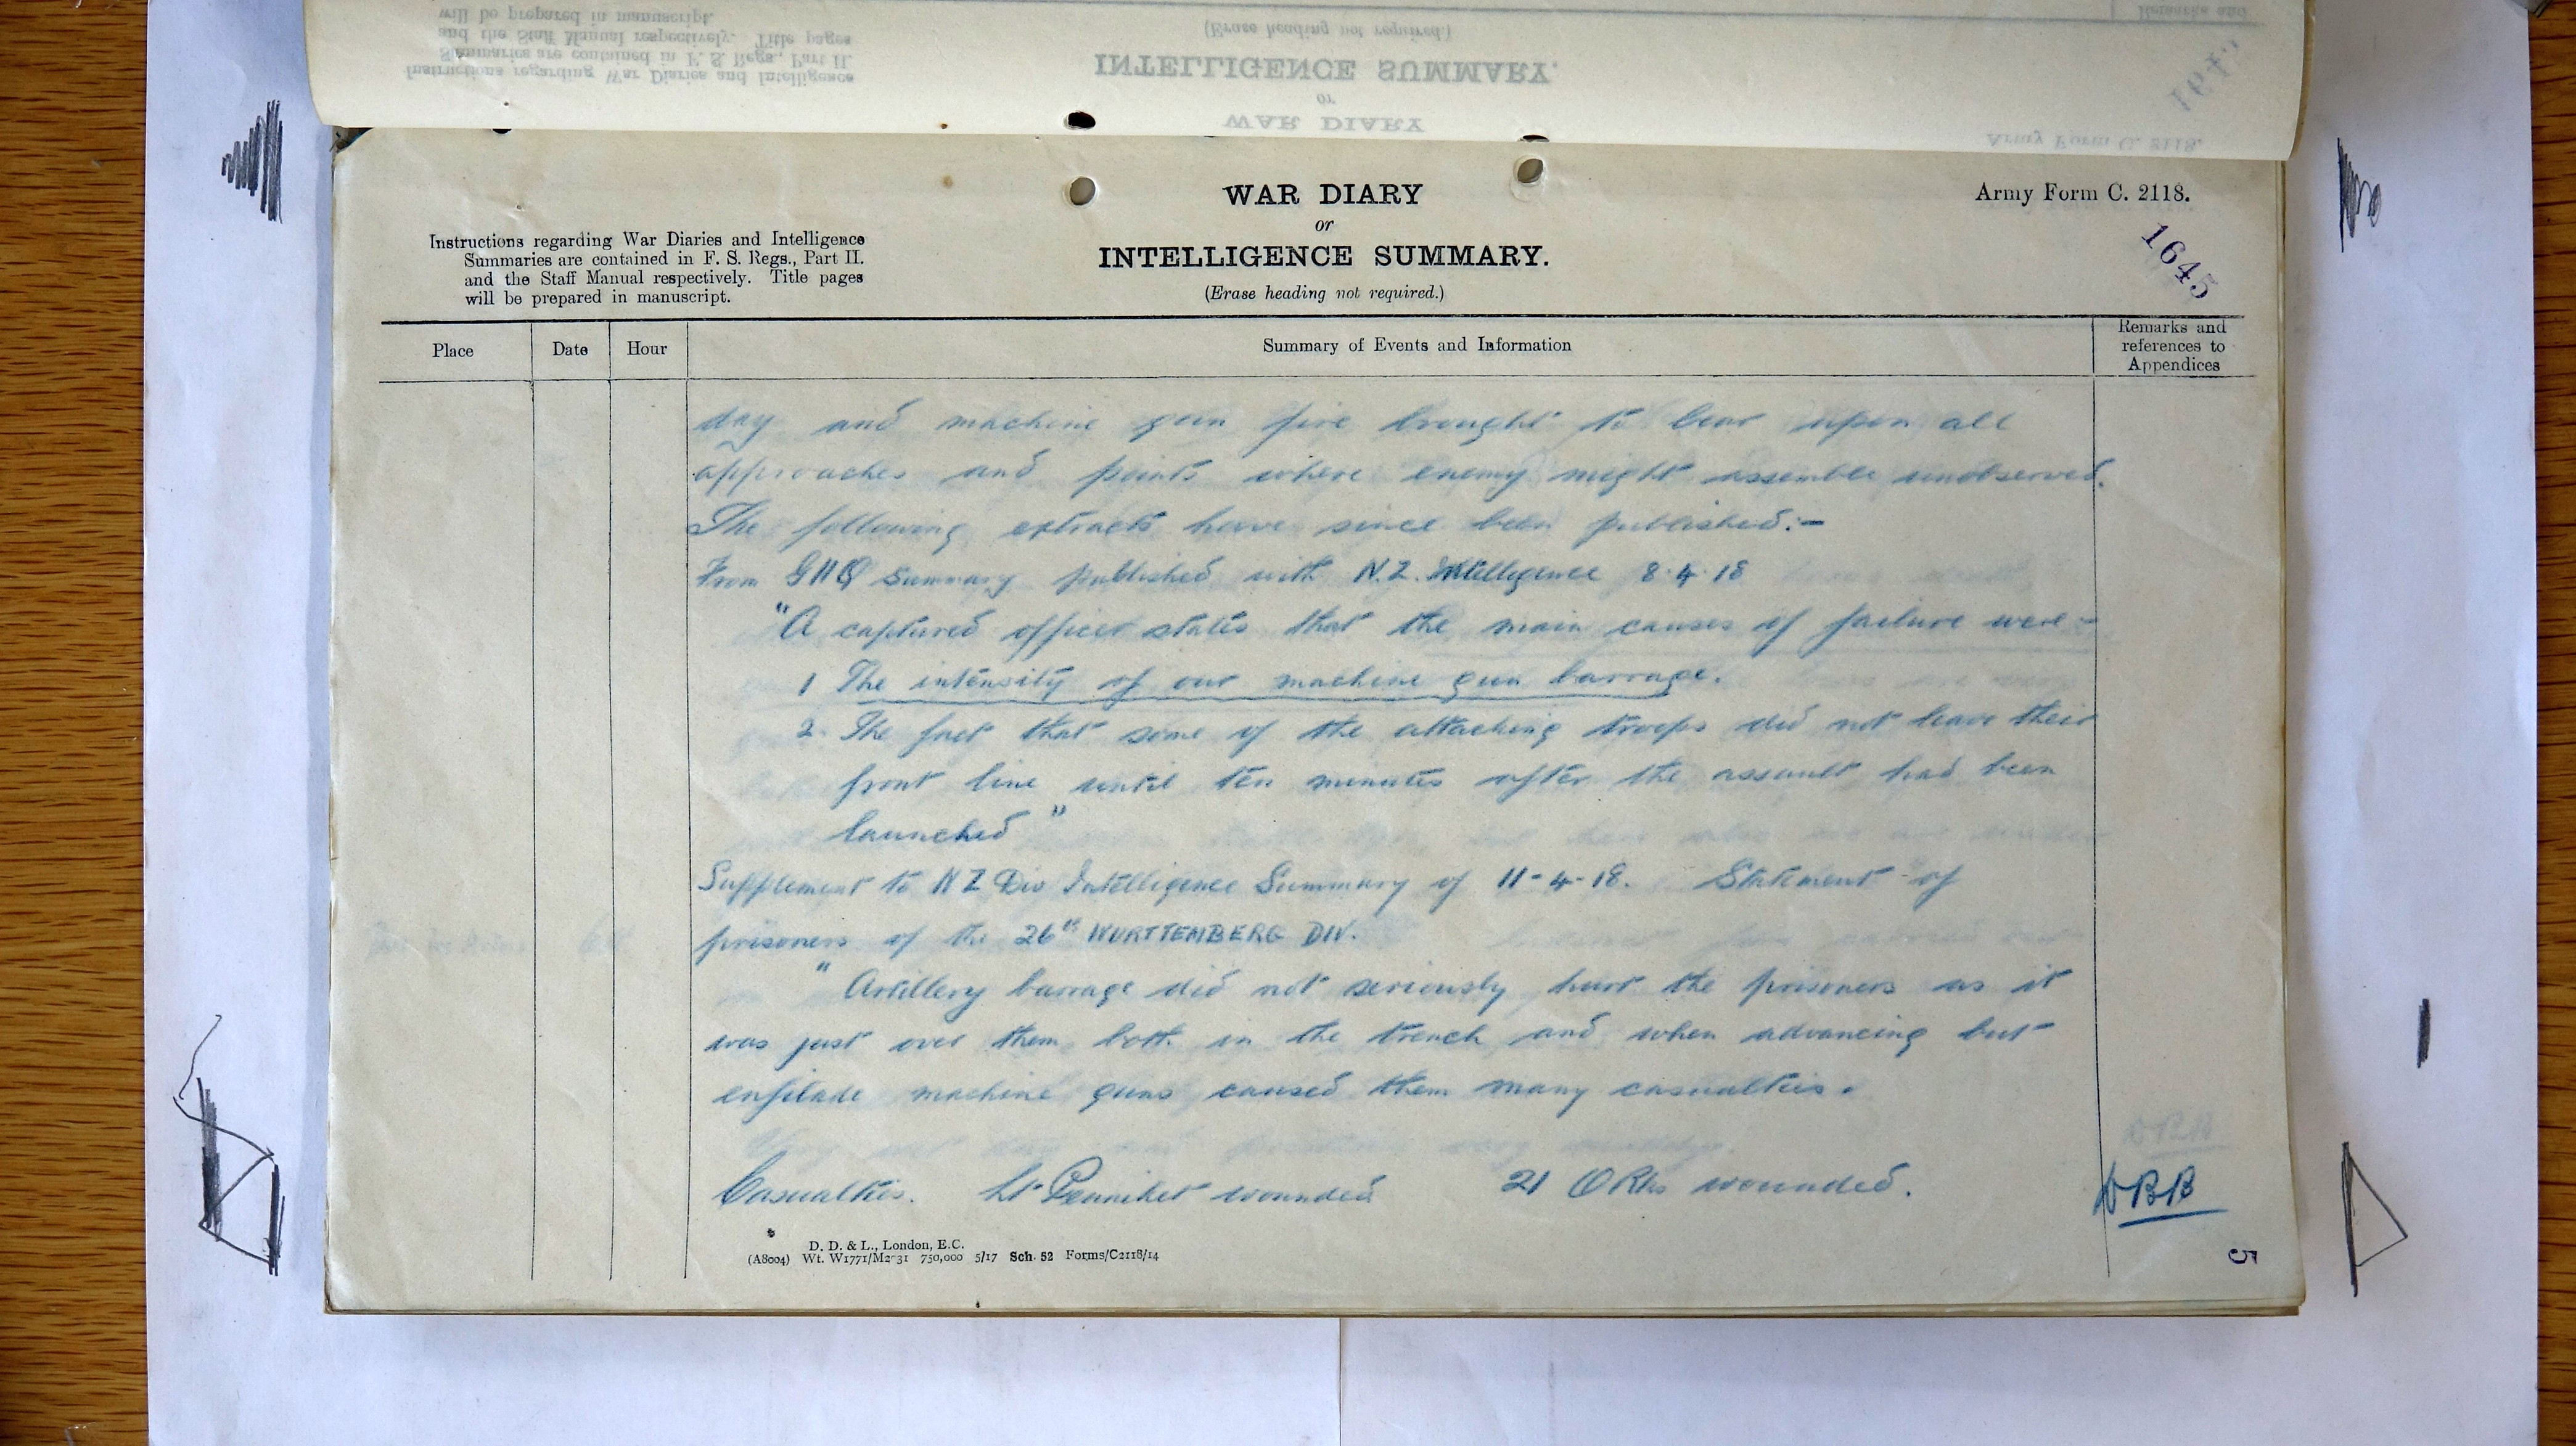 WAR DIARY
or
INTELLIGENCE SUMMARY.
(Erase heading not required.)
Army Form C. 2118.
1645
Instructions regarding War Diaries and Intelligence
Summaries are contained in F. S. Regs., Part II.
and the Staff Manual respectively. Title pages
will be prepared in manuscript.
Place Date Hour Summary of Events and Information Remarks and references to Appendices
day and machine gun fire brought to bear upon all
approaches and points where enemy might assemble unobserved.
The following extracts have since been published:-
From GHQ Summary published with N.Z. Intelligence 8.4.18
"A captured officer states that the main causes of failure were:-
1 The intensity of our machine gun barrage.
2. The fact that some of the attacking troops did not leave their
front line until ten minutes after the assault had been
launched"
Supplement to NZ Div Intelligence Summary of 11-4-18. Statement of
prisoners of the 26th WURTTEMBERG DIV.
"Artillery barrage did not seriously hurt the prisoners as it
was just over them both in the trench and when advancing but
enfilade machine guns caused them many casualties.
Casualties. Lt Penniket wounded 21 ORks wounded.
DBB
D. D. & L., London, E.C.
(A8004) Wt. W1771/M2031 750,000 5/17 Sch. 52 Forms/C2118/14
5